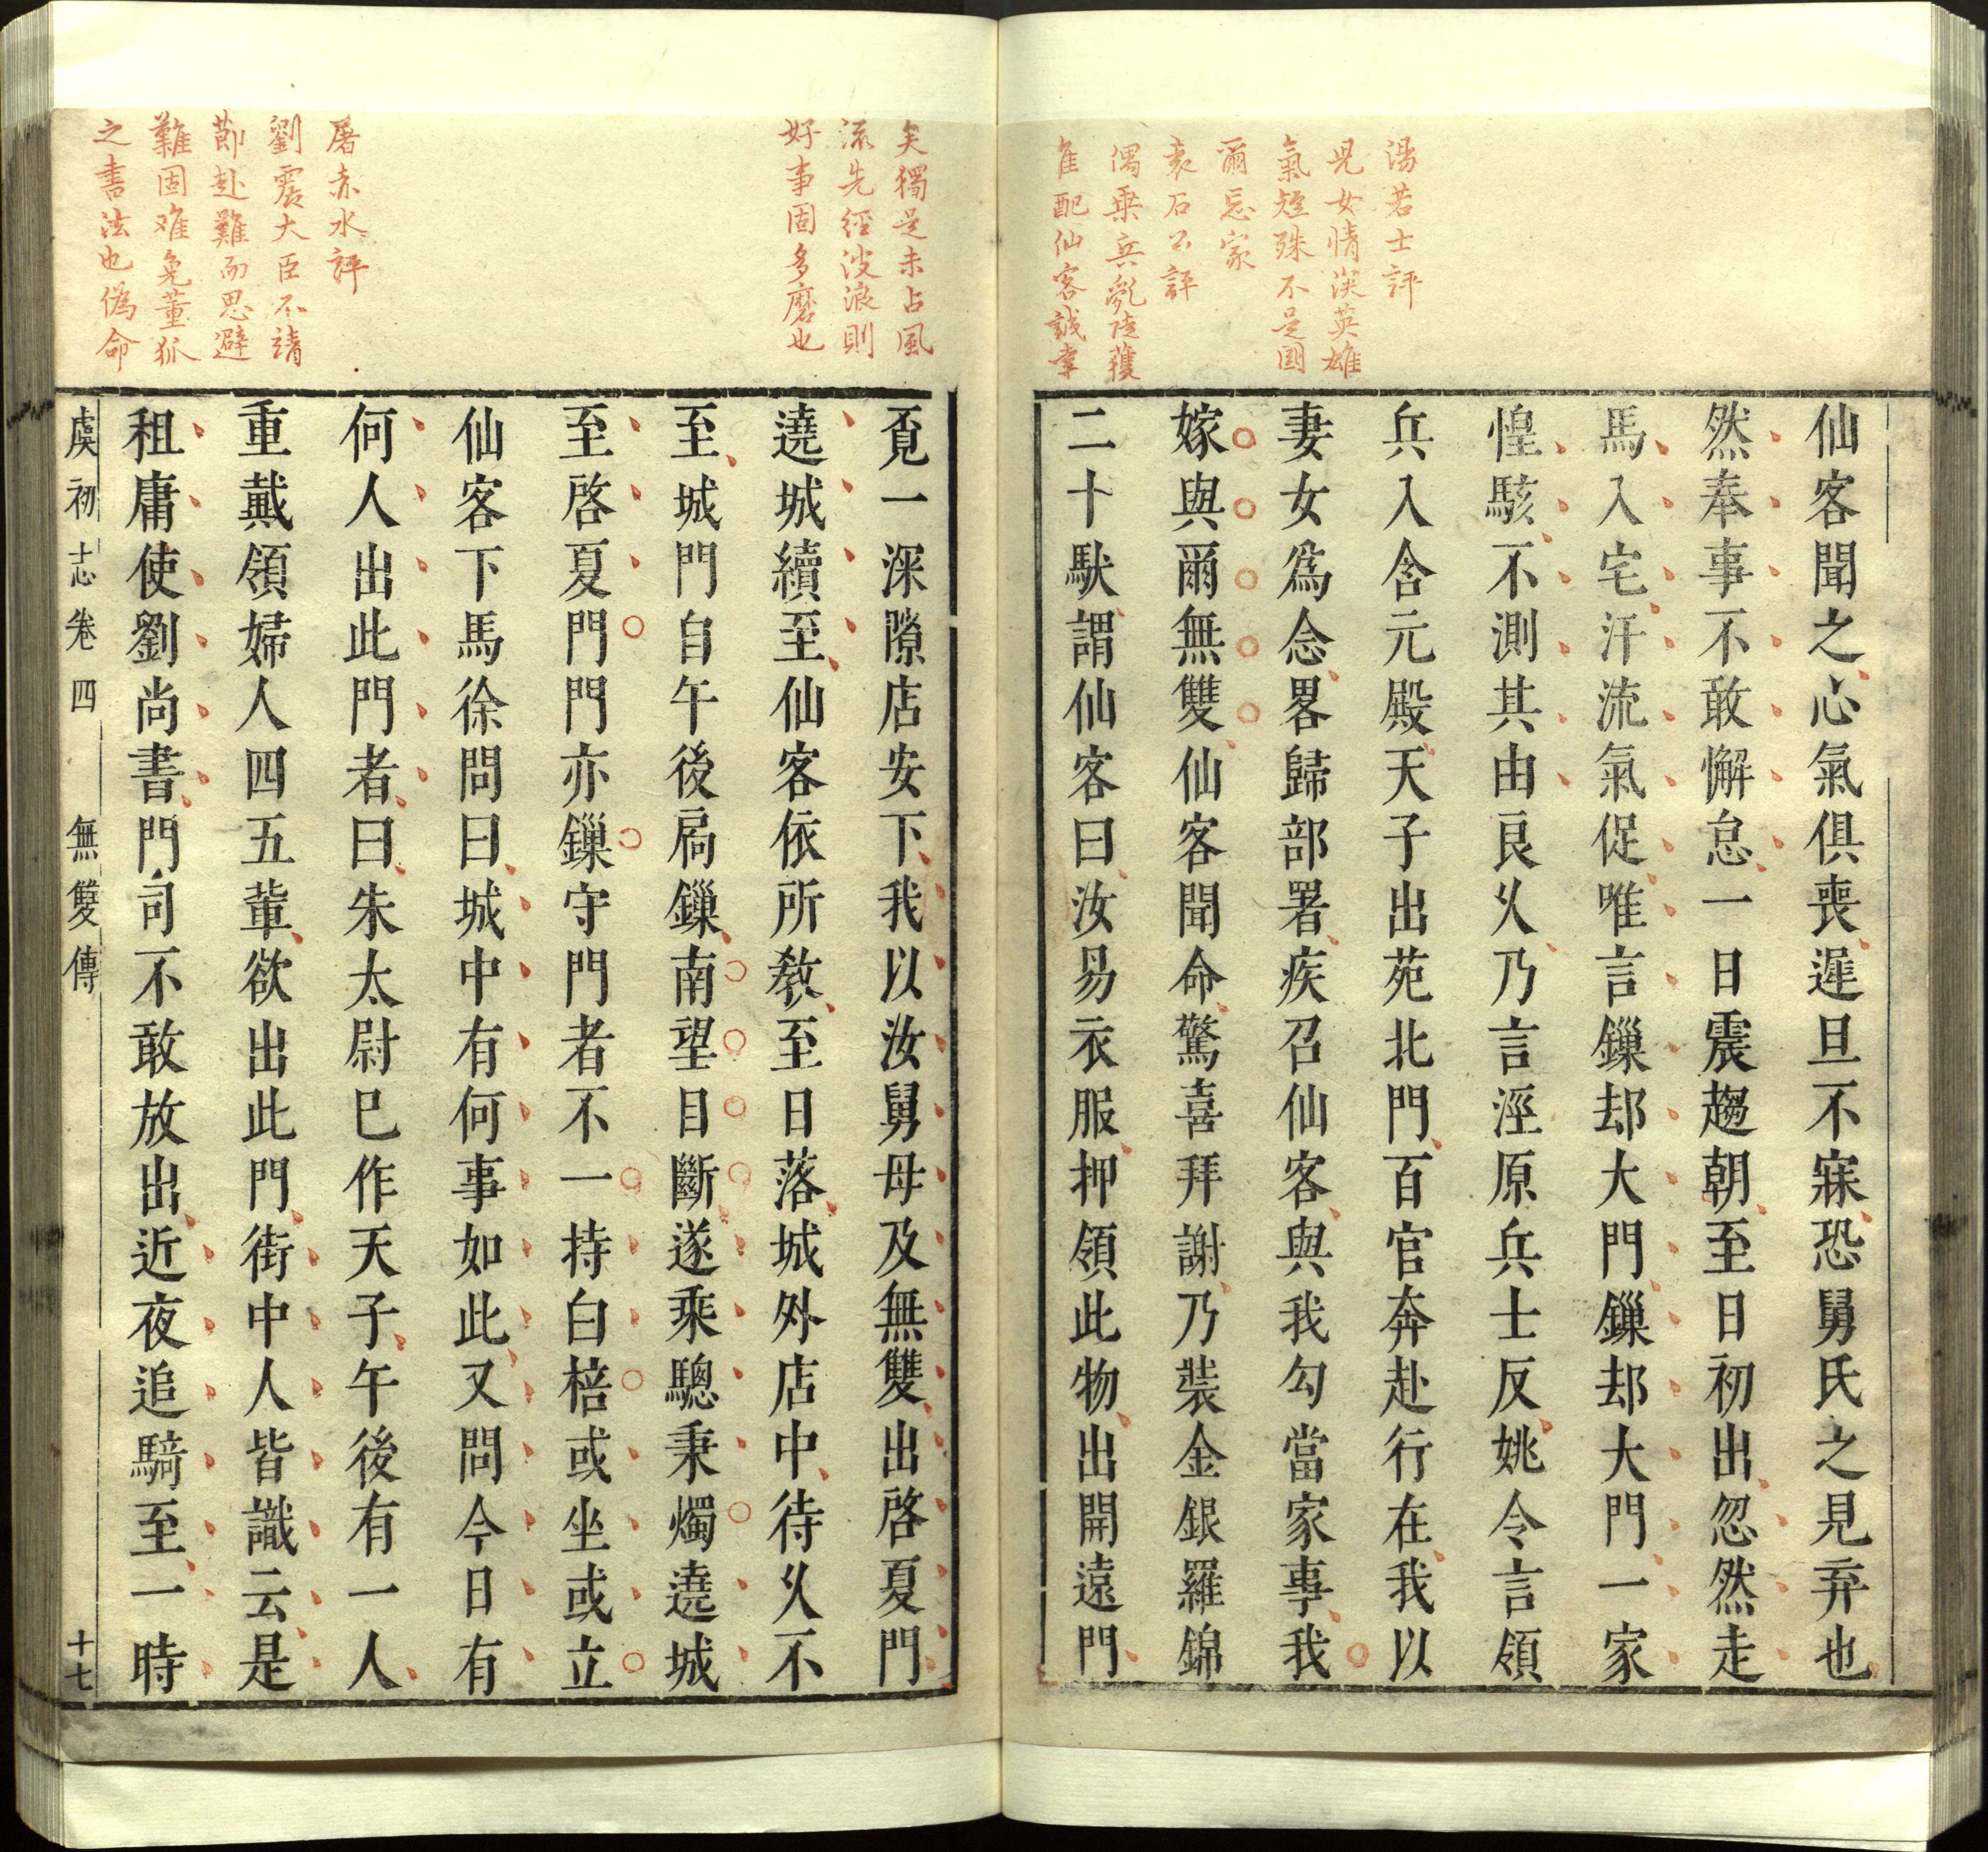 湯若士評
兒女情深英雄
氣短殊不是國
爾忘家
袁石公評
偶乘兵亂陡獲
隹配仙客誠幸
仙客聞之心氣俱喪遲旦不寐恐舅氏之見弃也
然奉事不敢懈怠一日震趨朝至日初出忽然走
馬入宅汗流氣促唯言鏁却大門鏁却大門一家
惶駭不測其由良乆乃言涇原兵士反姚令言領
兵入含元殿天子出苑北門百官奔赴行在我以
妻女爲念畧歸部署疾召仙客與我勾當家事我
嫁與爾無雙仙客聞命驚喜拜謝乃裝金銀羅錦
二十馱謂仙客曰汝易衣服押領此物出開遠門
矣獨是未占風
流先經波浪則
好事固多磨也
屠赤水評
劉震大臣不靖
節赴難而思避
難固难免董狐
之書法也偽命
覔一深隙店安下我以汝舅母及無雙出啓夏門
遶城續至仙客依所教至日落城外店中待乆不
至城門自午後扃鏁南望目斷遂乘驄秉燭遶城
至啓夏門門亦鏁守門者不一持白棓或坐或立
仙客下馬徐問曰城中有何事如此又問今日有
何人出此門者曰朱太尉巳作天子午後有一人
重戴領婦人四五輩欲出此門街中人皆識云是
租庸使劉尚書門司不敢放出近夜追騎至一時
虞初志卷四 無雙傳 十七